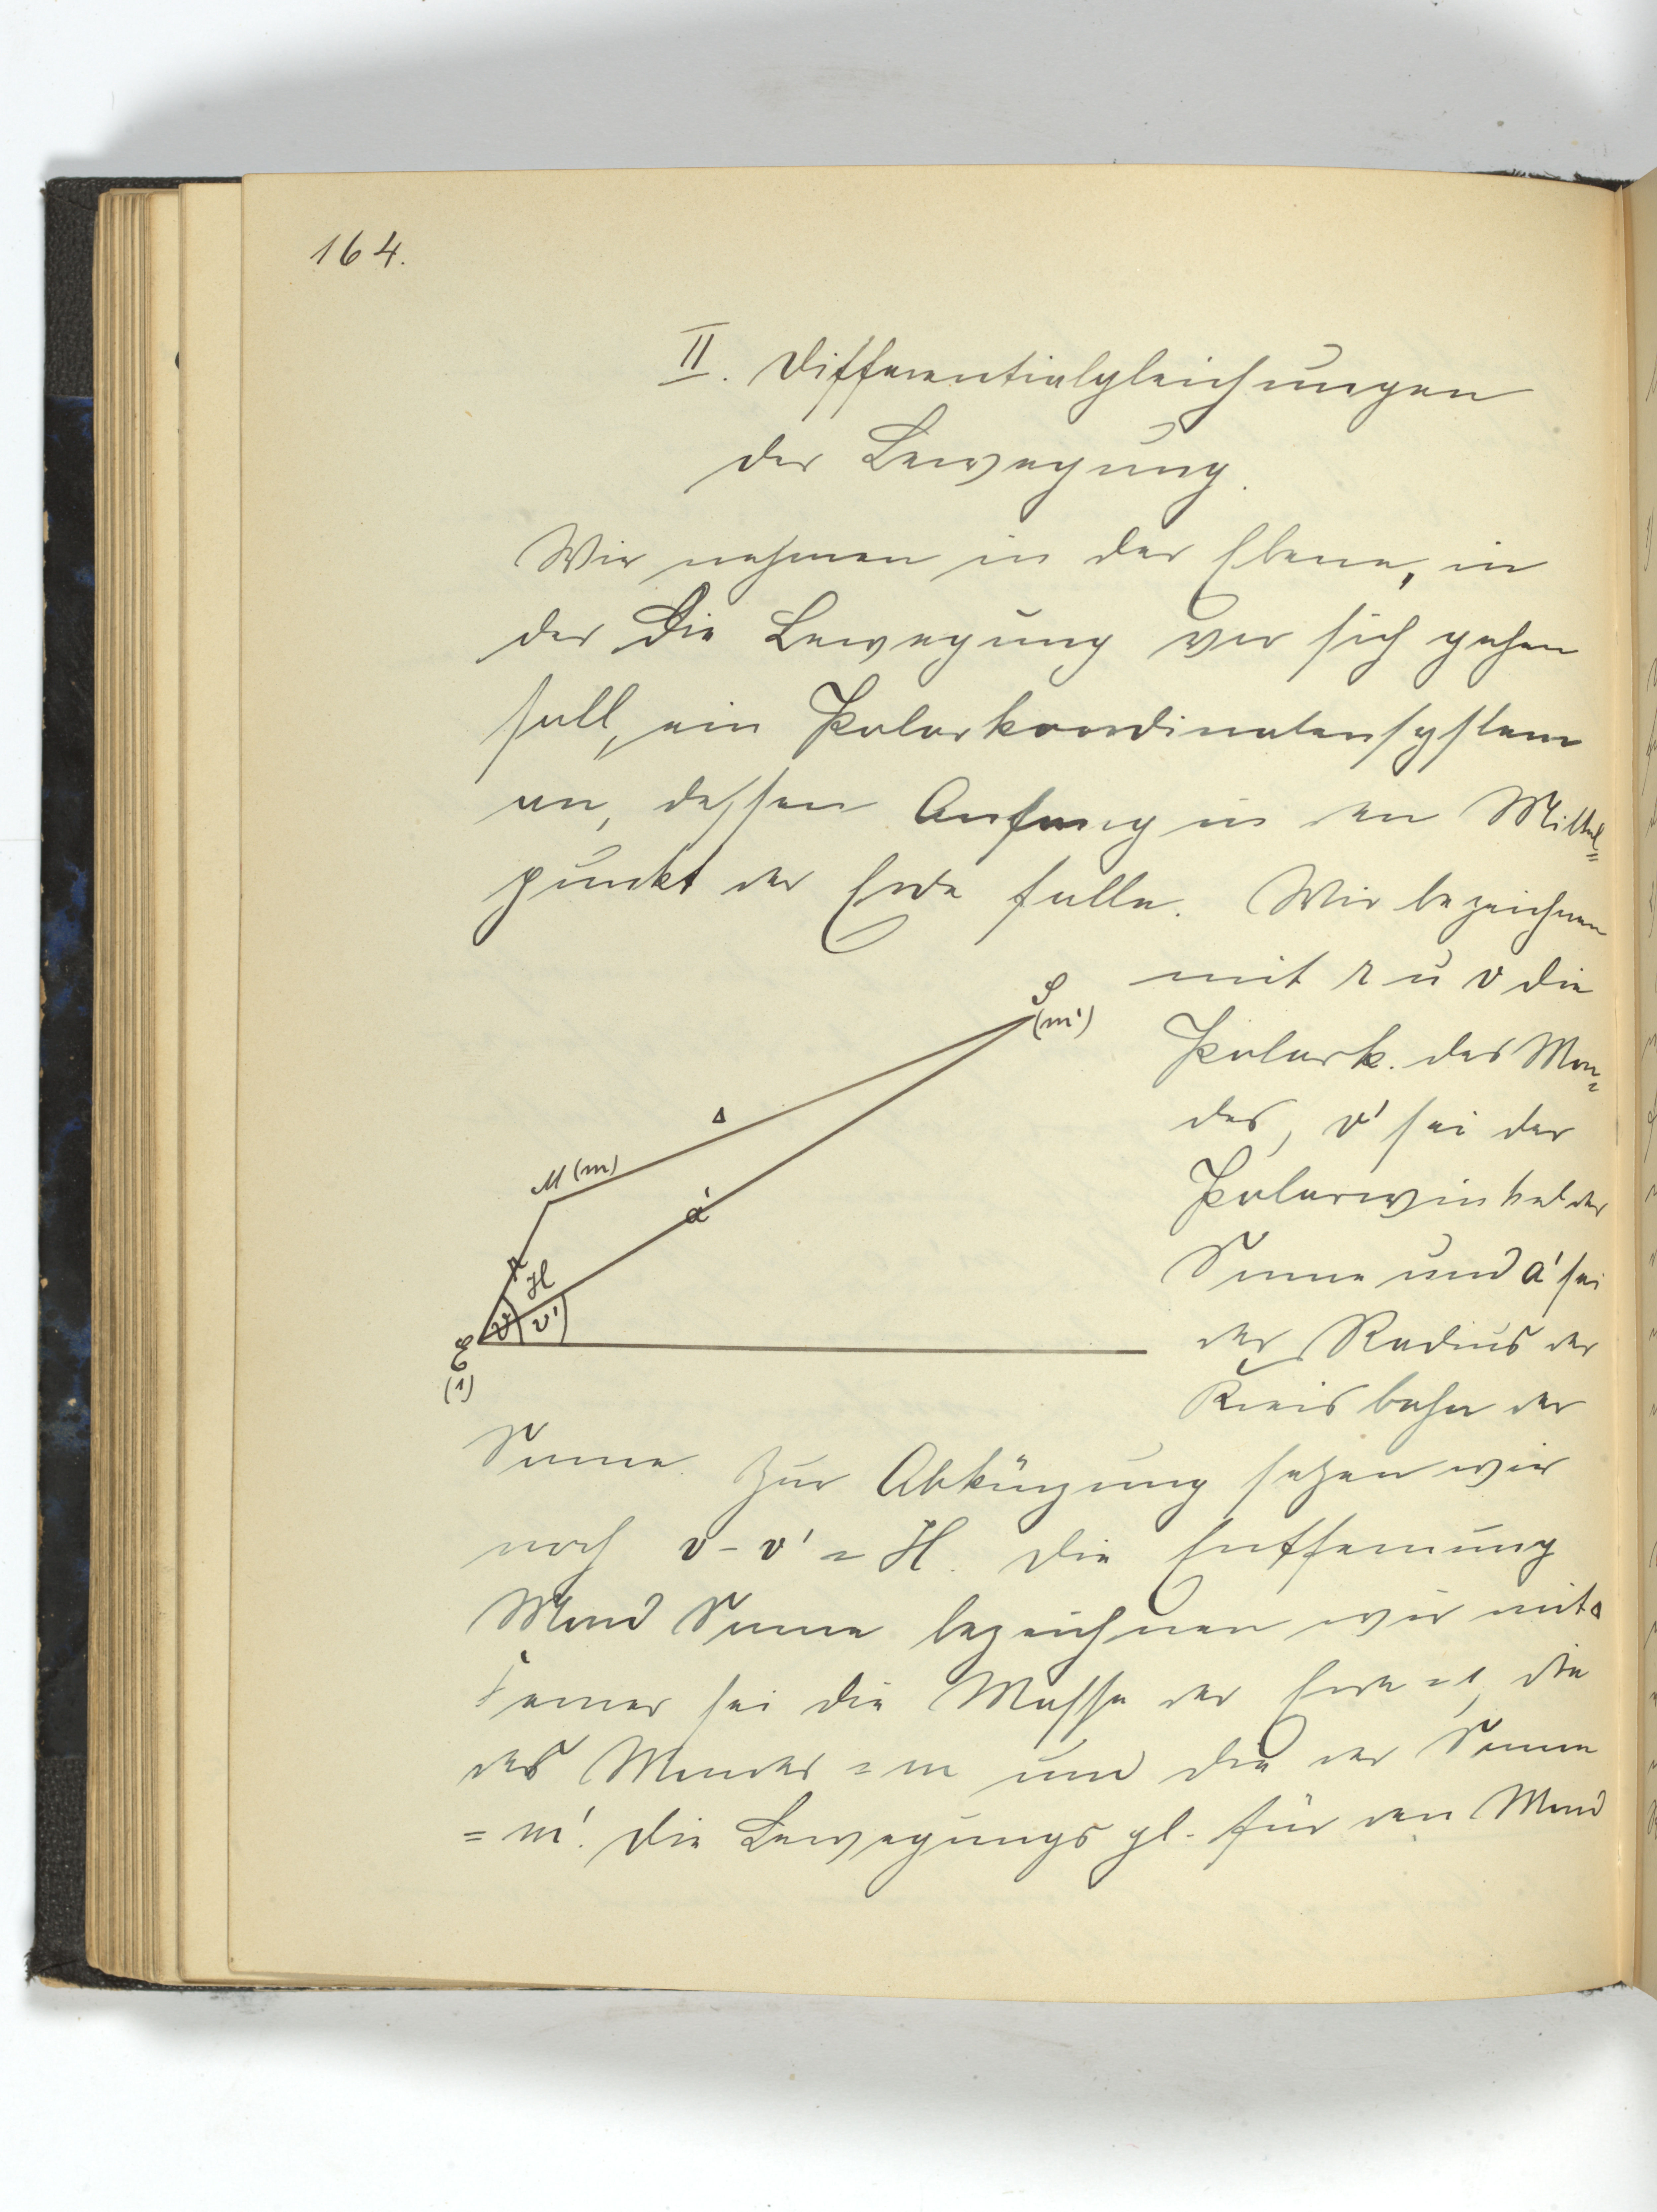 164.
II. Differentialgleichungen
der Bewegung.
Wir nehmen in der Ebene, in
der die Bewegung vor sich gehen
soll, ein Polarkoordinatensystem
an, dessen Anfang in den Mittel=
punkt der Erde falle. Wir bezeichnen
mit r u v die
Polark. des Mon=
des, v' sei der
Polarwinkel der
Sonne und a' sei
der Radius der
Kreisbahn der
S
(m')
Δ
M (m)
a'
r
H
v
v'
E
(1)
Sonne. Zur Abkürzung setzen wir
noch v - v' = H. Die Entfernung
Mond Sonne bezeichnen wir mit Δ
Ferner sei die Masse der Erde = 1, die
des Mondes = m und die der Sonne
= m'. Die Bewegungsgl. für den Mond